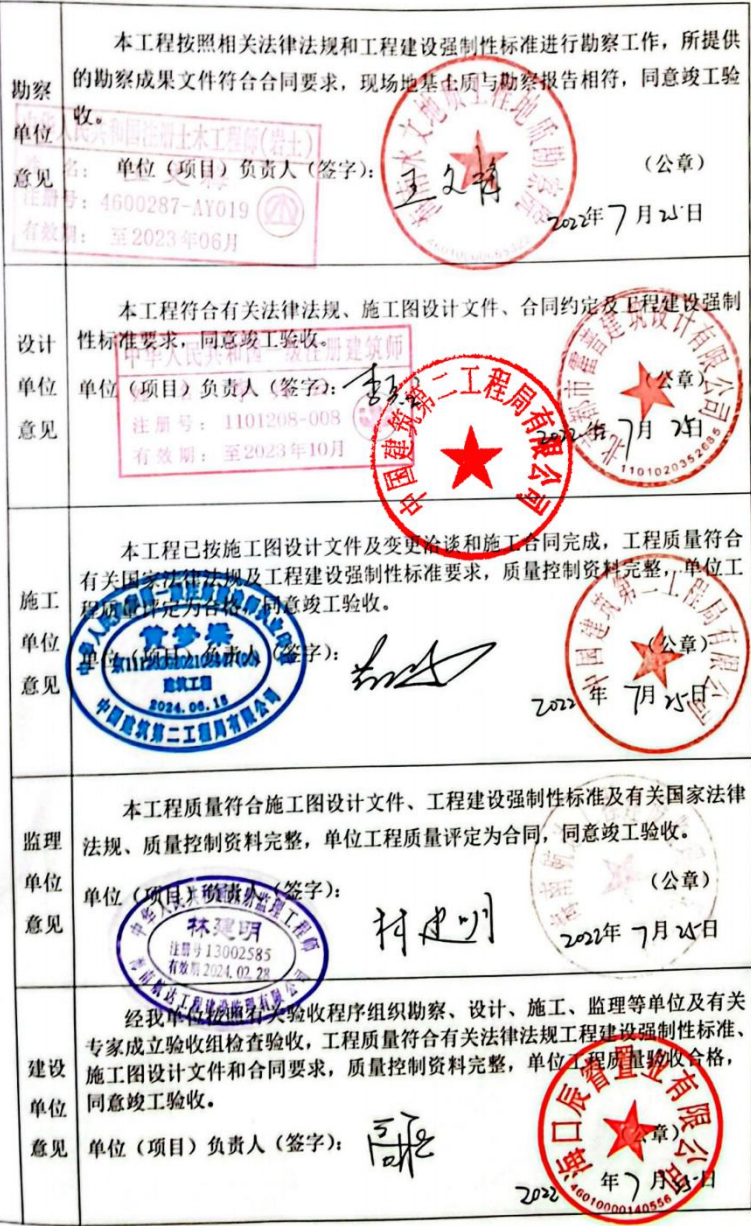 勘察单位意见
本工程按照相关法律法规和工程建设强制性标准进行勘察工作，所提供
的勘察成果文件符合合同要求，现场地基土质与勘察报告相符，同意竣工验
收。
中华人民共和国注册土木工程师(岩土)
注册号：4600287-AY019
有效期：至2023年06月
单位（项目）负责人（签字）：
（公章）
2022年7月25日
设计单位意见
本工程符合有关法律法规、施工图设计文件、合同约定及工程建设强制
性标准要求，同意竣工验收。
中华人民共和国一级注册建筑师
注册号：1101208-008
有效期：至2023年10月
单位（项目）负责人（签字）：
中国建筑第二工程局有限公司
建筑设计有限公司
1101020352685
（公章）
2022年7月25日
施工单位意见
本工程已按施工图设计文件及变更洽谈和施工合同完成，工程质量符合
有关国家法律法规及工程建设强制性标准要求，质量控制资料完整，单位工
程质量评定为合格，同意竣工验收。
建筑工程
2024.06.15
中国建筑第二工程局有限公司
单位（项目）负责人（签字）：
中国建筑第二工程局有限公司
（公章）
2022年7月25日
监理单位意见
本工程质量符合施工图设计文件、工程建设强制性标准及有关国家法律
法规、质量控制资料完整，单位工程质量评定为合同，同意竣工验收。
单位（项目）负责人（签字）：
林建明
注册号13002585
有效期2024.02.28
林建明
（公章）
2022年7月25日
建设单位意见
经我单位按照有关验收程序组织勘察、设计、施工、监理等单位及有关
专家成立验收组检查验收，工程质量符合有关法律法规工程建设强制性标准、
施工图设计文件和合同要求，质量控制资料完整，单位工程质量验收合格，
同意竣工验收。
单位（项目）负责人（签字）：
海口辰睿置业有限公司
46010000140556
（公章）
2022年7月25日